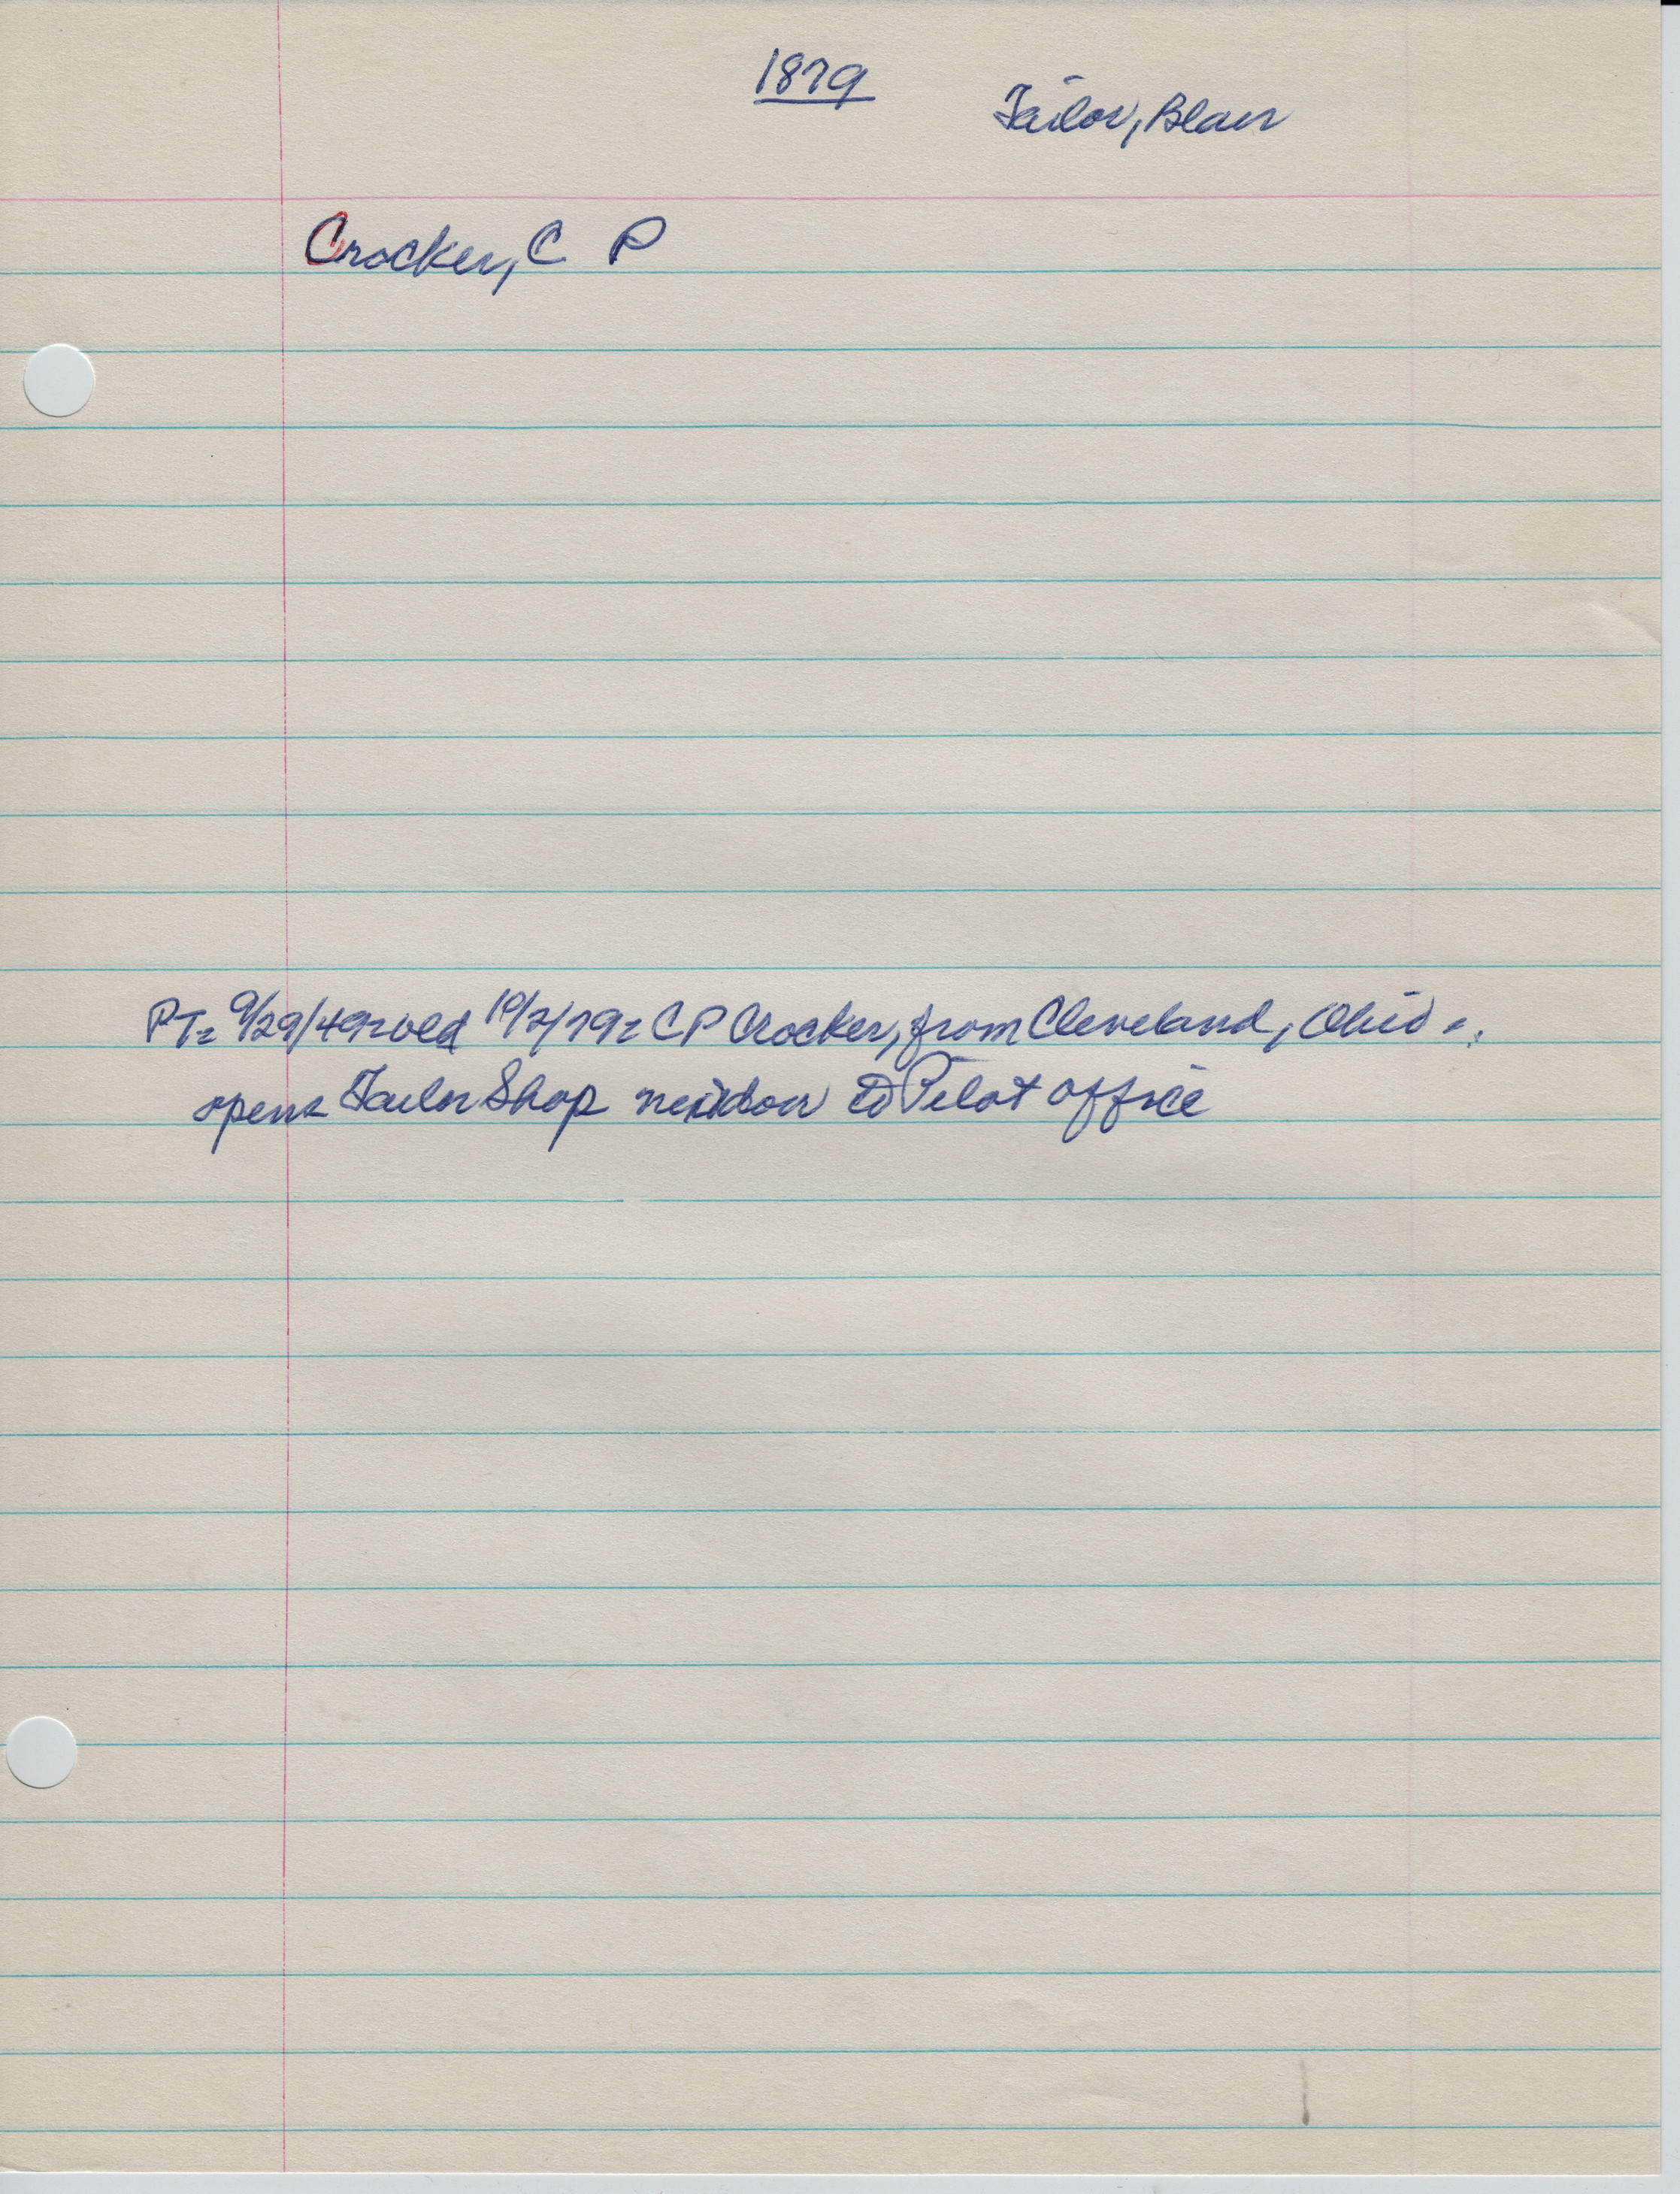 1879
Tailor, Blair
Crocker, C P
PT= 9/29/49=old 10/2/79= C P Crocker, from Cleveland, Ohio =,
opens Tailor Shop nextdoor to Pilot office